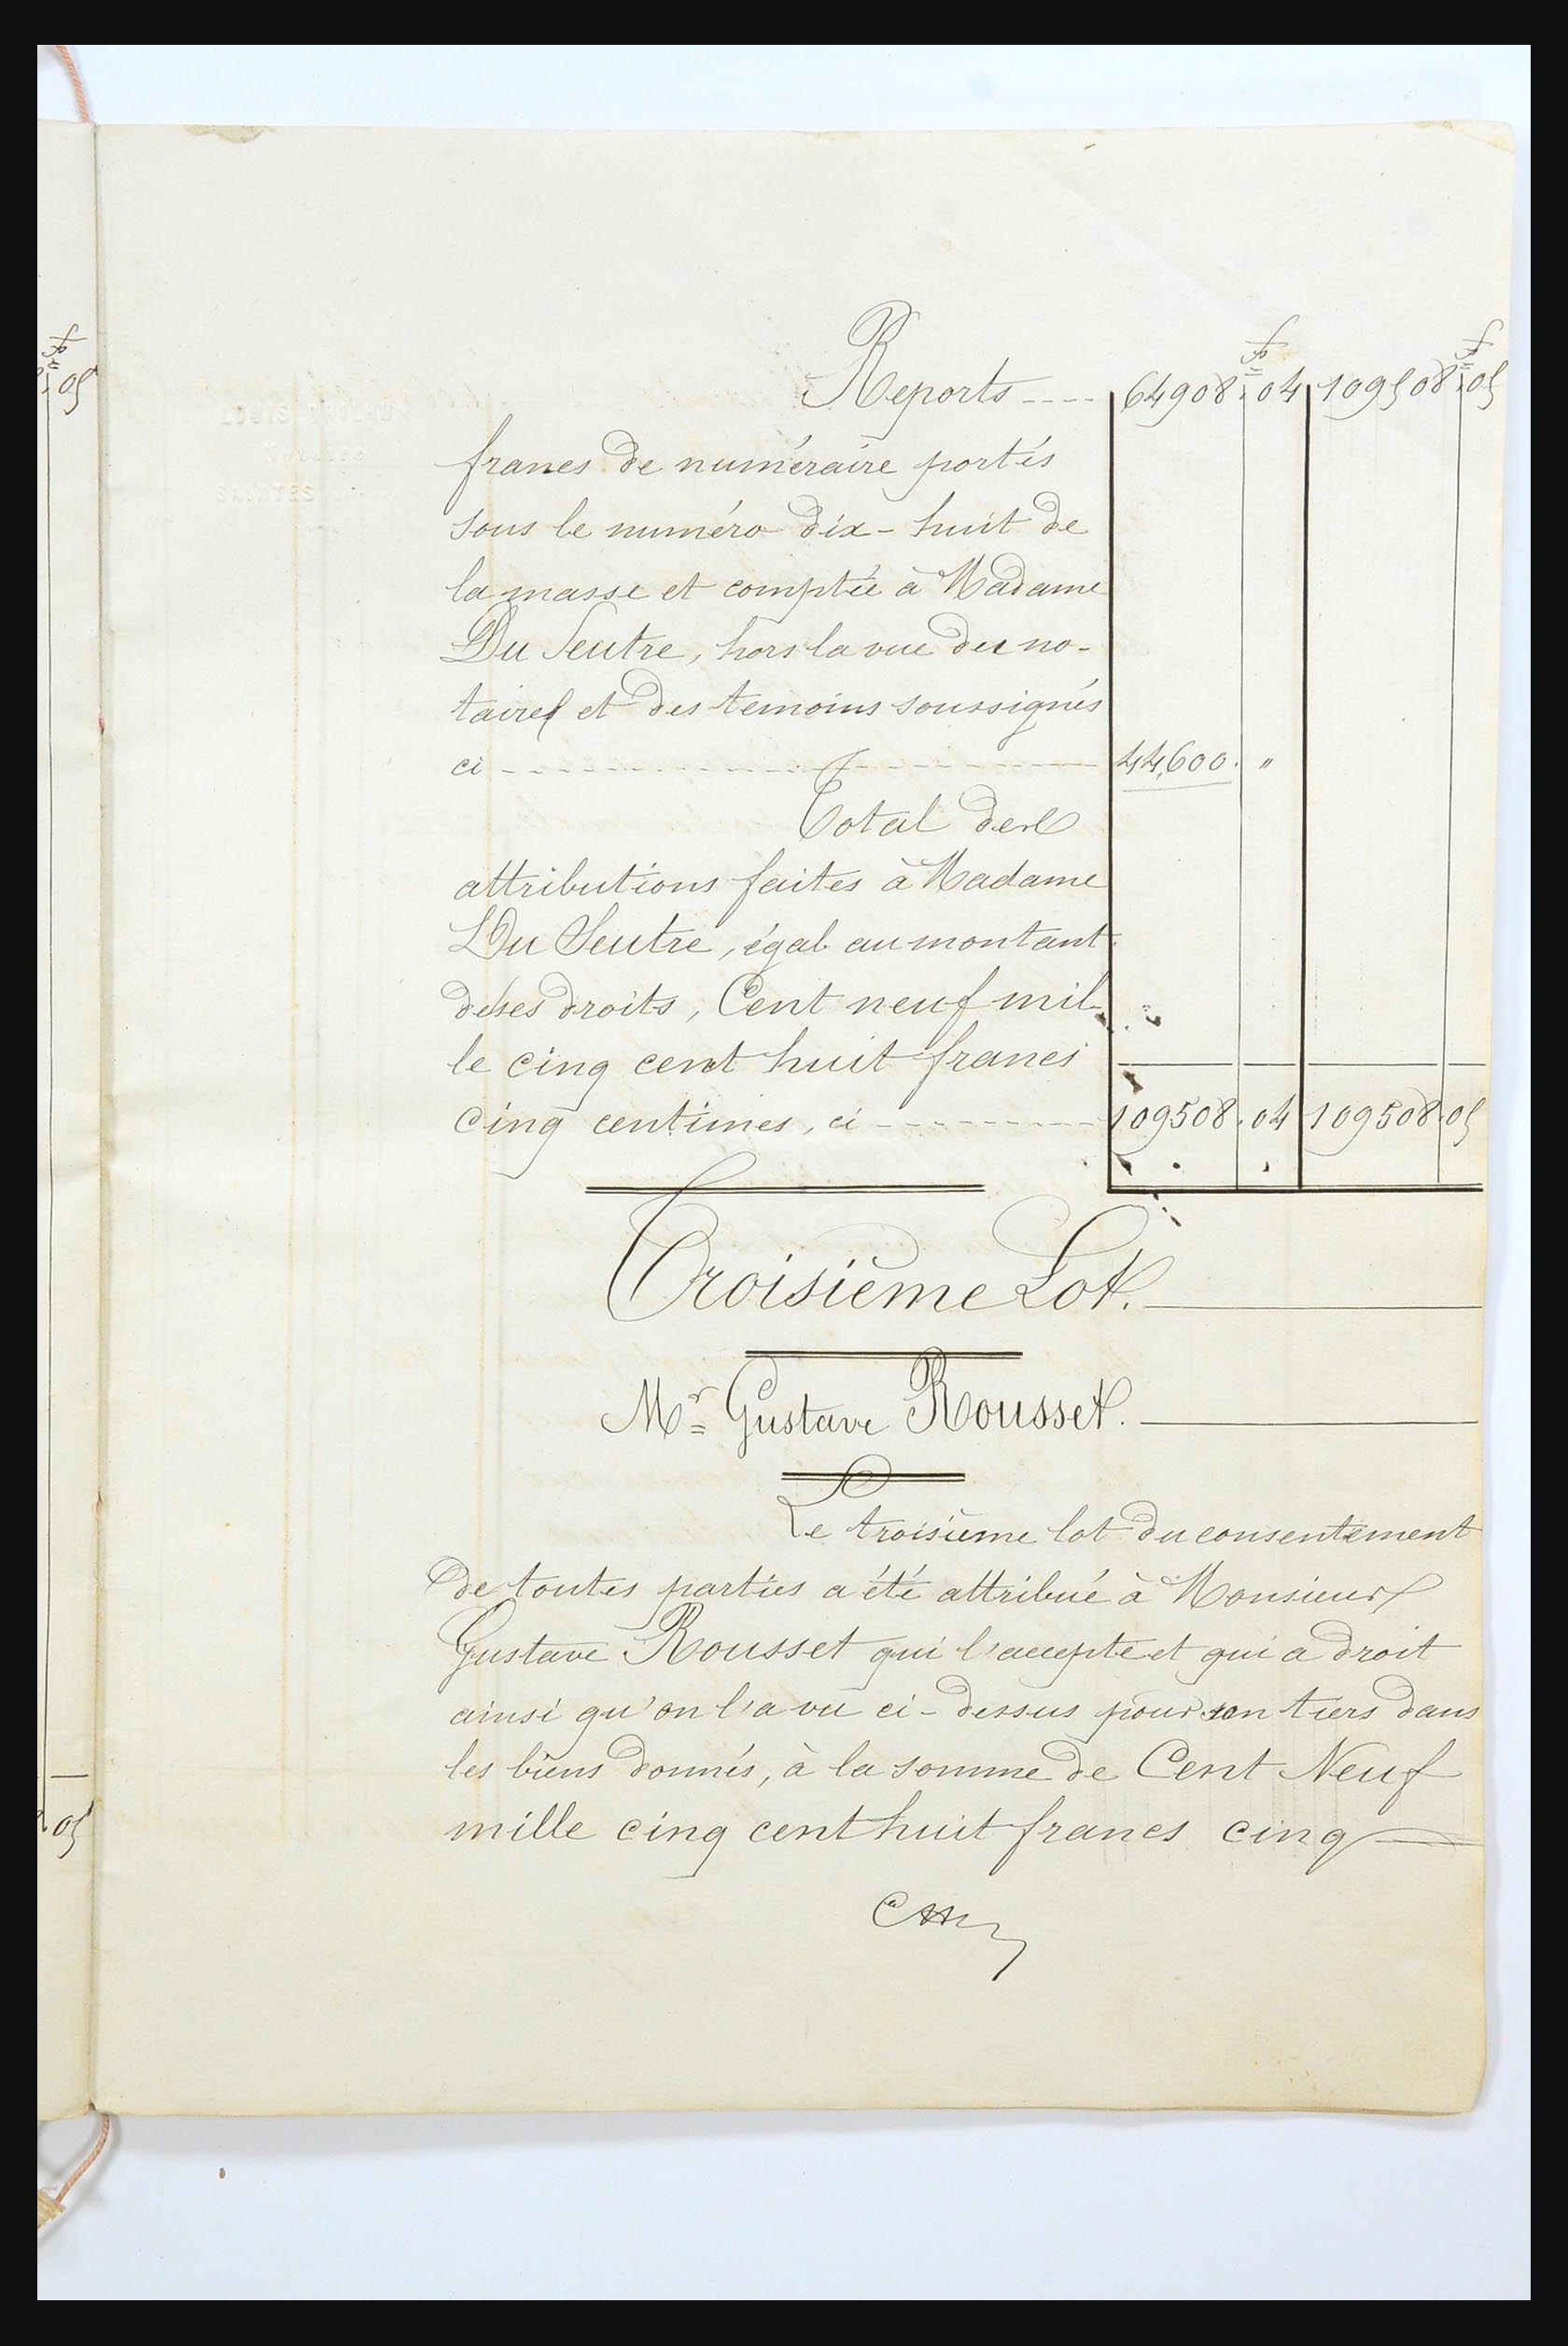 Reports ---- 64908 f. 04 109508 f. 05
francs de numéraire portés
sous le numéro dix-huit de
la masse et comptée à Madame
Du Seutre, hors la vue du no-
taire et des temoins soussignés
ci ---------- 44,600. "
Total des
attributions faites à Madame
Du Seutre, égal au montant
de ses droits, Cent neuf mil-
le cinq cent huit francs
cinq centimes, ci ---------- 109508.04 109508.05
Troisième Lot.
Mr Gustave Rousset.
Le troisième lot du consentement
de toutes parties a été attribué à Monsieur
Gustave Rousset qui l'accepte et qui a droit
ainsi qu'on l'a vu ci-dessus pour son tiers dans
les biens donnés, à la somme de Cent Neuf
mille cinq cent huit francs cinq